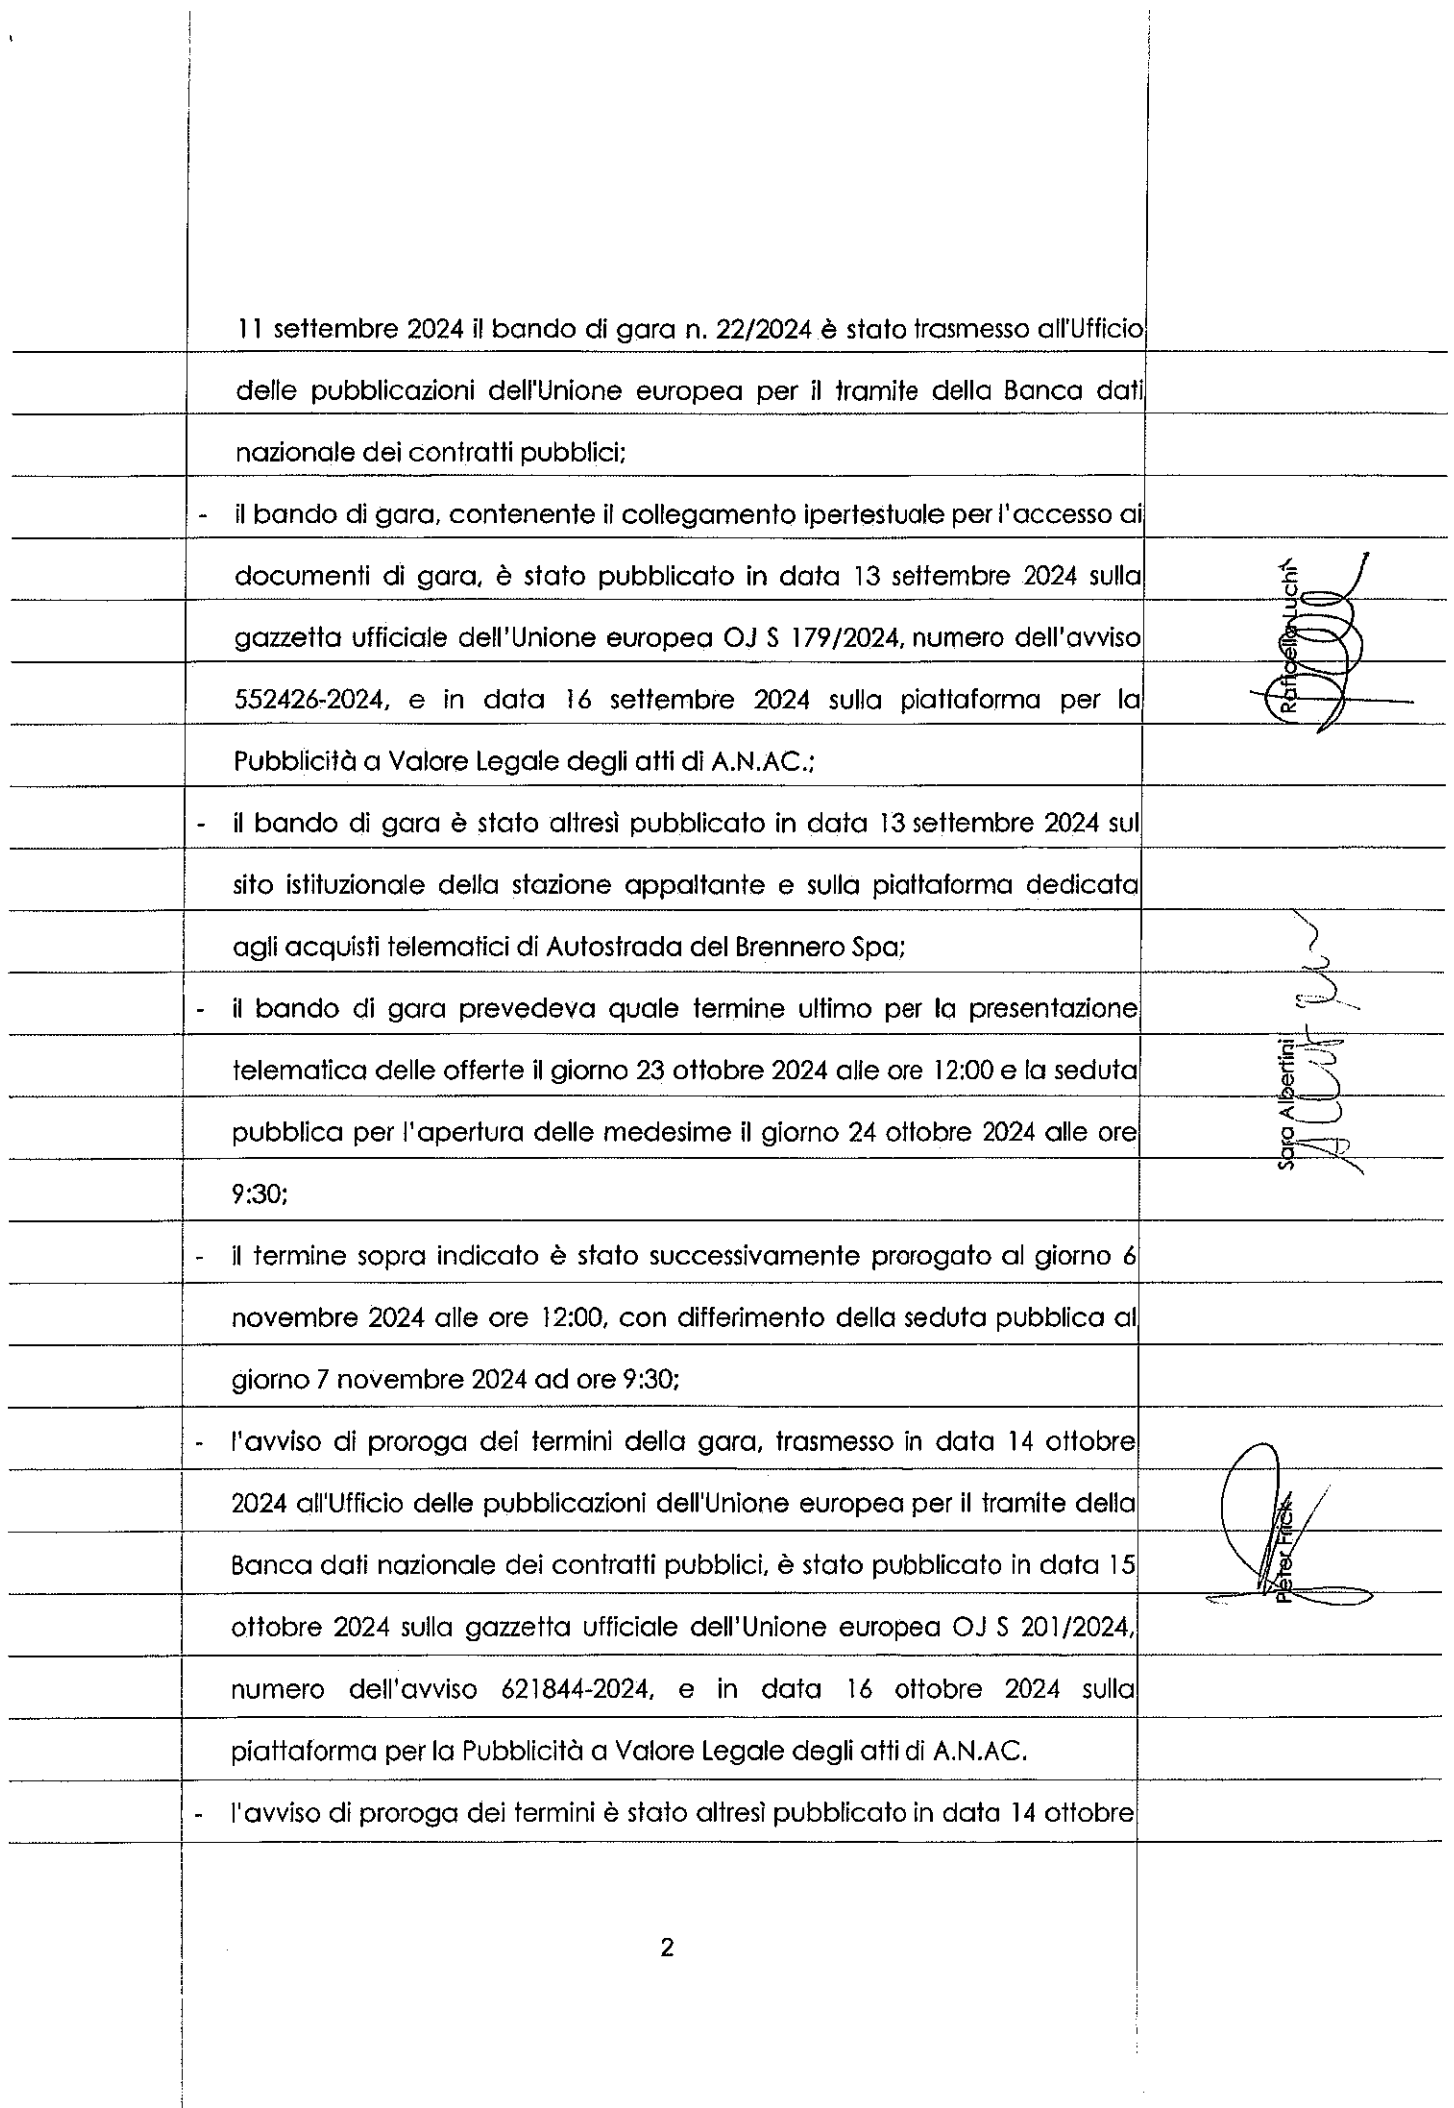 11 settembre 2024 il bando di gara n. 22/2024 è stato trasmesso all'Ufficio
delle pubblicazioni dell'Unione europea per il tramite della Banca dati
nazionale dei contratti pubblici;
- il bando di gara, contenente il collegamento ipertestuale per l'accesso ai
documenti di gara, è stato pubblicato in data 13 settembre 2024 sulla
gazzetta ufficiale dell'Unione europea OJ S 179/2024, numero dell'avviso
552426-2024, e in data 16 settembre 2024 sulla piattaforma per la
Pubblicità a Valore Legale degli atti di A.N.AC.;
- il bando di gara è stato altresì pubblicato in data 13 settembre 2024 sul
sito istituzionale della stazione appaltante e sulla piattaforma dedicata
agli acquisti telematici di Autostrada del Brennero Spa;
- il bando di gara prevedeva quale termine ultimo per la presentazione
telematica delle offerte il giorno 23 ottobre 2024 alle ore 12:00 e la seduta
pubblica per l'apertura delle medesime il giorno 24 ottobre 2024 alle ore
9:30;
- il termine sopra indicato è stato successivamente prorogato al giorno 6
novembre 2024 alle ore 12:00, con differimento della seduta pubblica al
giorno 7 novembre 2024 ad ore 9:30;
- l'avviso di proroga dei termini della gara, trasmesso in data 14 ottobre
2024 all'Ufficio delle pubblicazioni dell'Unione europea per il tramite della
Banca dati nazionale dei contratti pubblici, è stato pubblicato in data 15
ottobre 2024 sulla gazzetta ufficiale dell'Unione europea OJ S 201/2024,
numero dell'avviso 621844-2024, e in data 16 ottobre 2024 sulla
piattaforma per la Pubblicità a Valore Legale degli atti di A.N.AC.
- l'avviso di proroga dei termini è stato altresì pubblicato in data 14 ottobre
2
Luchi
Sara Albertini
Pieter Frick